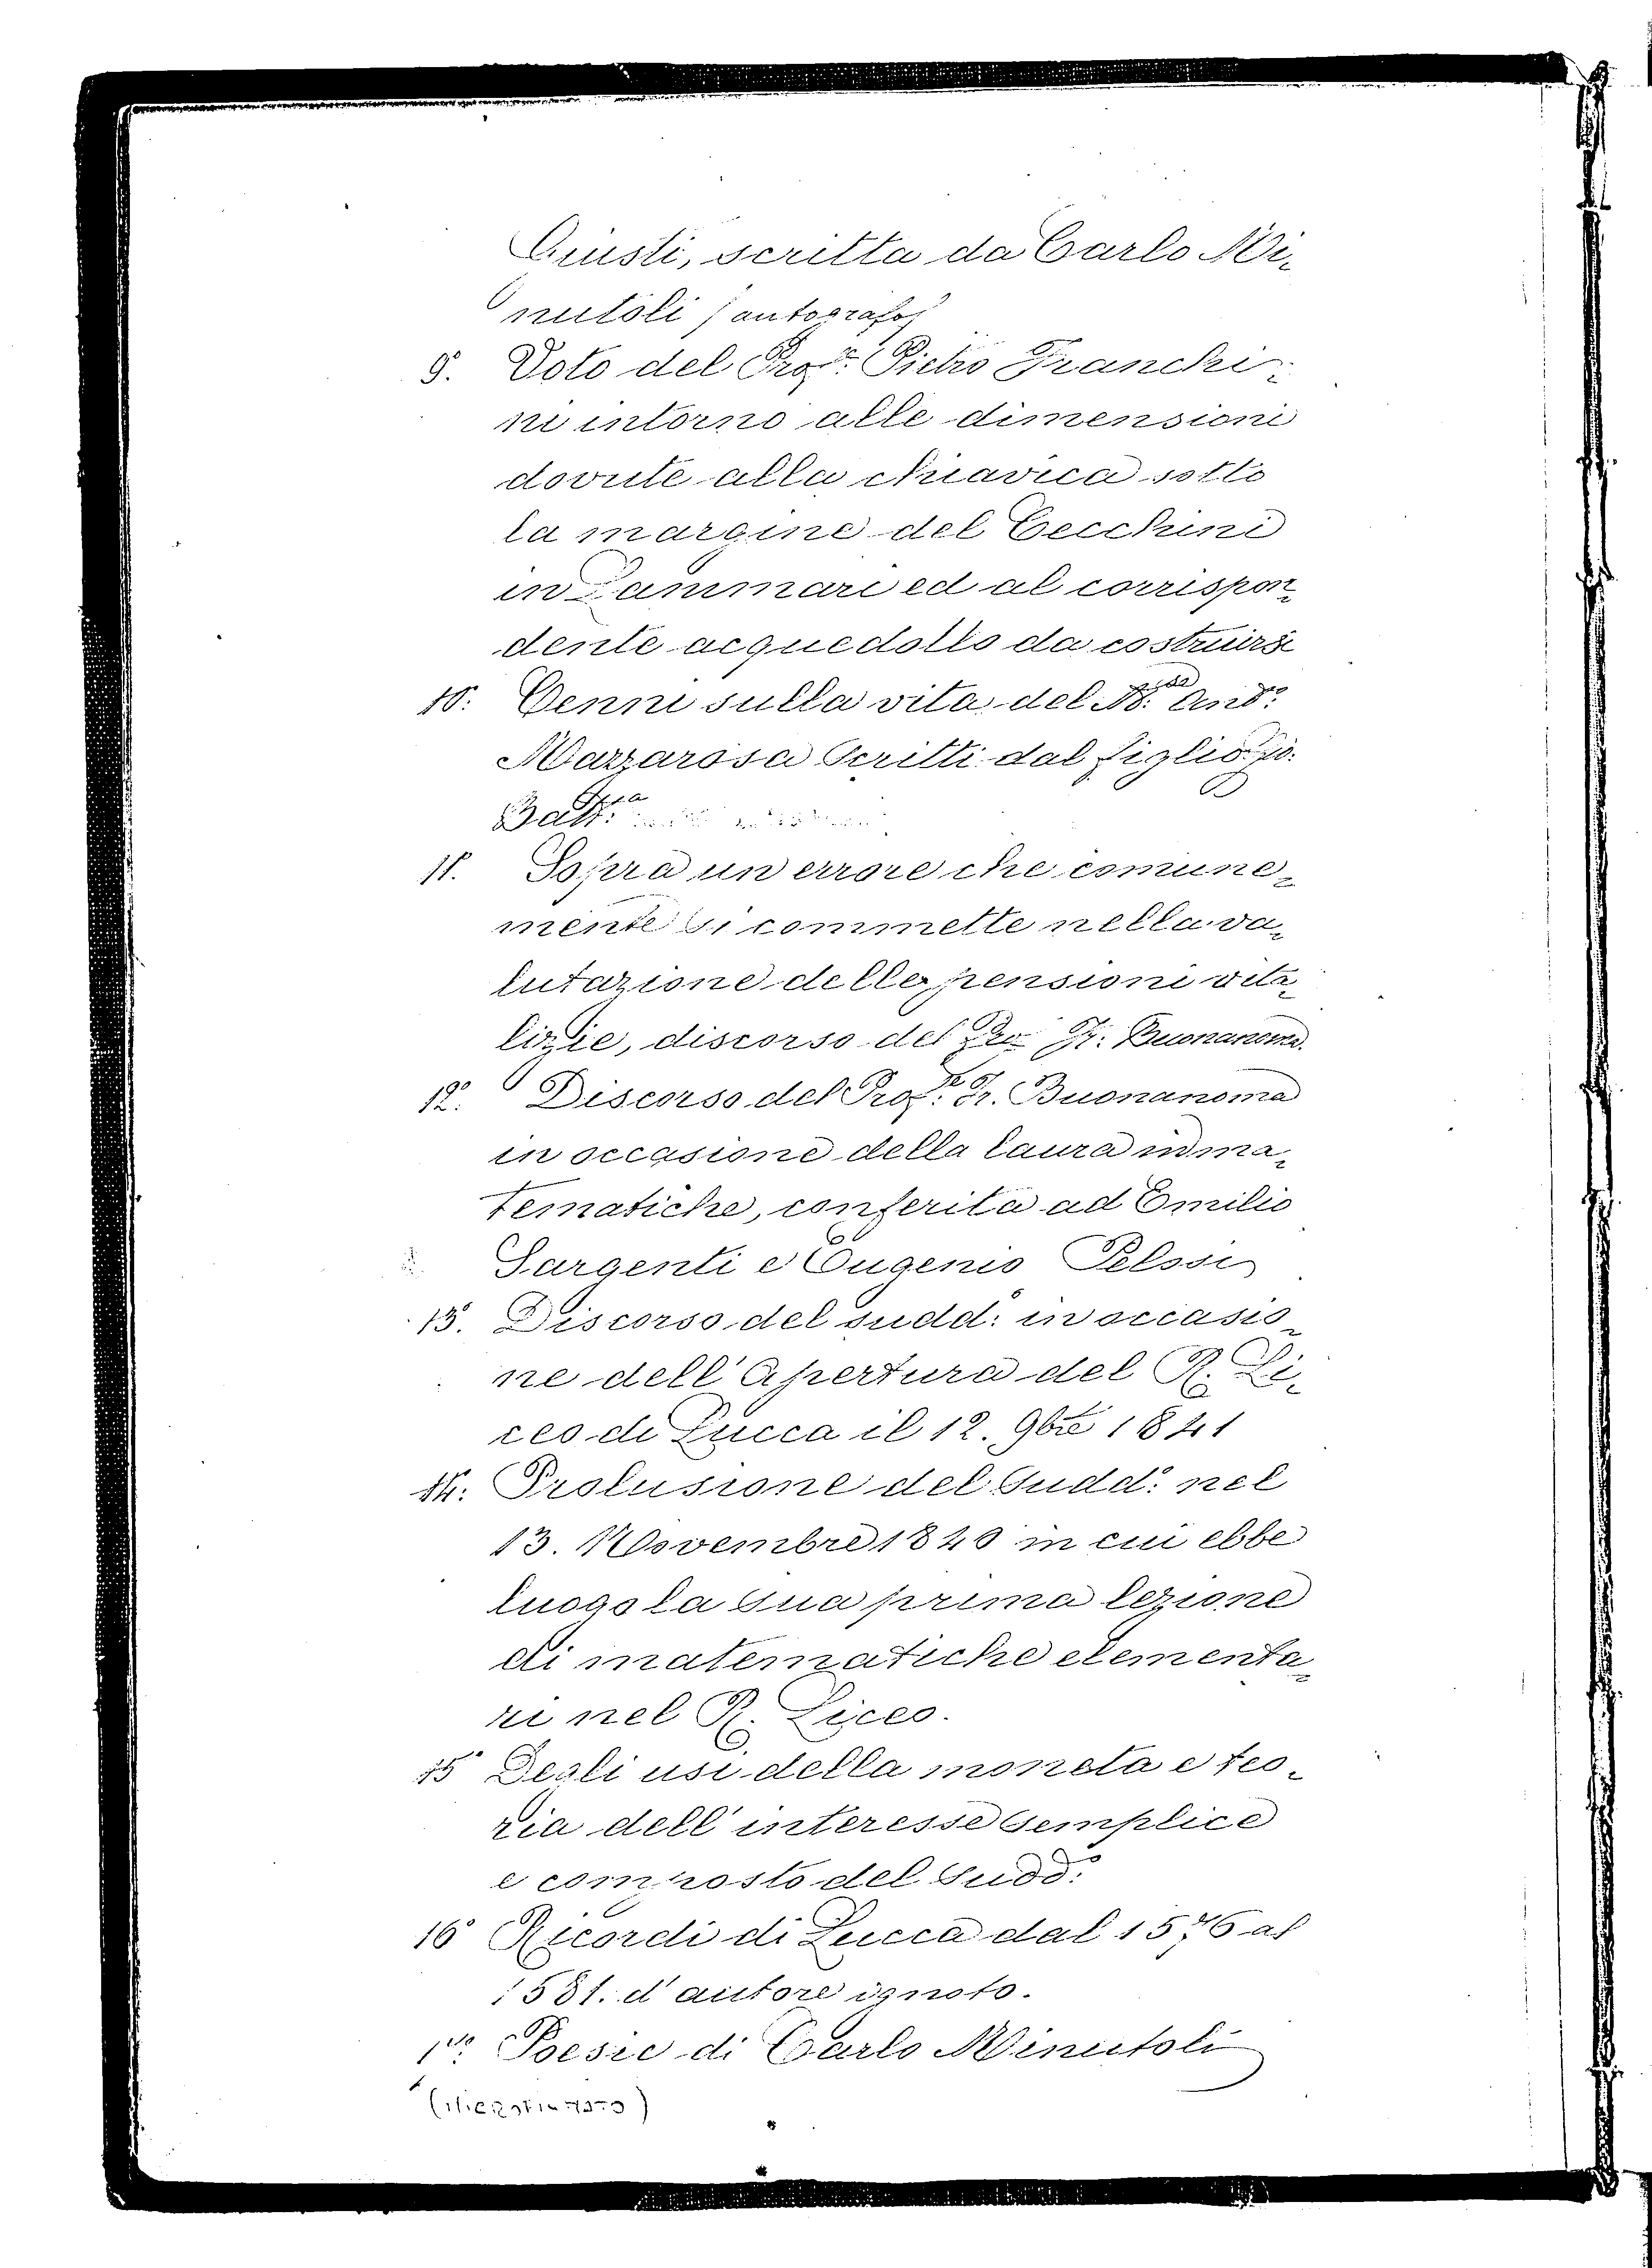 Giusti, scritta da Carlo Mi-
nutoli (autografo)
9°. Voto del Prof.re Pietro Franchi-
ni intorno alle dimensioni
dovute alla chiavica sotto
la margine del Cecchini
in Lammari ed al corrispon-
dente acquedotto da costruirsi
10°. Cenni sulla vita del M.se And.a
Mazzarosa scritti dal figlio Gio.
Batt.a
11°. Sopra un errore che comune-
mente si commette nella va-
lutazione delle pensioni vita-
lizie, discorso del Pro Fr. Buonanoma.
12°. Discorso del Prof.re Fr. Buonanoma
in occasione della laura in ma-
tematiche, conferita ad Emilio
Sargenti e Eugenio Pelosi
13°. Discorso del sudd.° in occasio-
ne dell'apertura del R. Li-
ceo di Lucca il 12. 9bre 1841
14°. Prolusione del sudd.° nel
13. Novembre 1840 in cui ebbe
luogo la sua prima lezione
di matematiche elementa-
ri nel R. Liceo.
15° Degli usi della moneta e teo-
ria dell'interesse semplice
e composto del sudd.°
16° Ricordi di Lucca dal 1576 al
1581. d'autore ignoto.
17°. Poesie di Carlo Minutoli
(microfilmato)